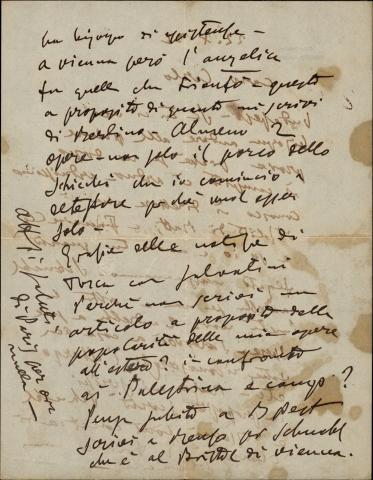 ha bisogno di assistenza –
a vienna però l'angelica
fu quella che trionfò e questo
a proposito di quanto mi scrivi
di Berlino. Almeno 2
opere – non solo il porco dello
Schicchi che io comincio a
detestare perché vuol esser
solo –
Grazie delle notizie di
Tosca con Salvatini
Perché non scrivi un
articolo a proposito della
popolarità delle mie opere
all'estero? in confronto
ai Palestrina e comp?
a B Pest
scrivi a Renzo per Schnabl
che è al Bristol di vienna.
aff. saluti
di
nulla